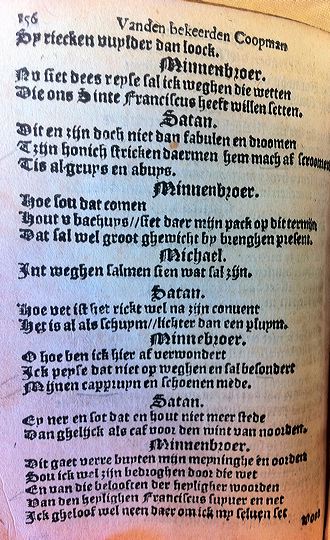 156 Vanden bekeerden Coopman
Sy riecken vuylder dan loock.
Minnenbroer.
Nv siet dees reyse sal ick weghen die wetten
Die ons Sinte Franciscus heeft willen setten.
Satan.
Dit en zijn doch niet dan fabulen en droomen
T zijn honich stricken daermen hem mach af scroomen
Tis al gruys en abuys.
Minnenbroer.
Hoe sou dat comen
Hout v bachuys//siet daer mijn pack op dit termijn
Dat sal wel groot ghewicht by brenghen present.
Michael.
Int weghen salmen sien wat sal zijn.
Satan.
Hoe vet ist het rickt wel na zijn conuent
Het is al als schuym//lichter dan een pluym.
Minnebroer.
O hoe ben ick hier af verwondert
Ick peyse dat niet op weghen en sal besondert
Mijnen cappruyn en schoenen mede.
Satan.
Ey ner en sot dat en hout niet meer stede
Dan ghelijck als caf voor den wint van noorden.
Minnenbroer.
Dit gaet verre buyten mijn meyninghe en oorden
Sou ick wel zijn bedroghen door die wet
En van die beloosten der heyligher woorden
Van den heylighen Franciscus supuer en net
Ick gheloof wel neen daer om ick my seluen set